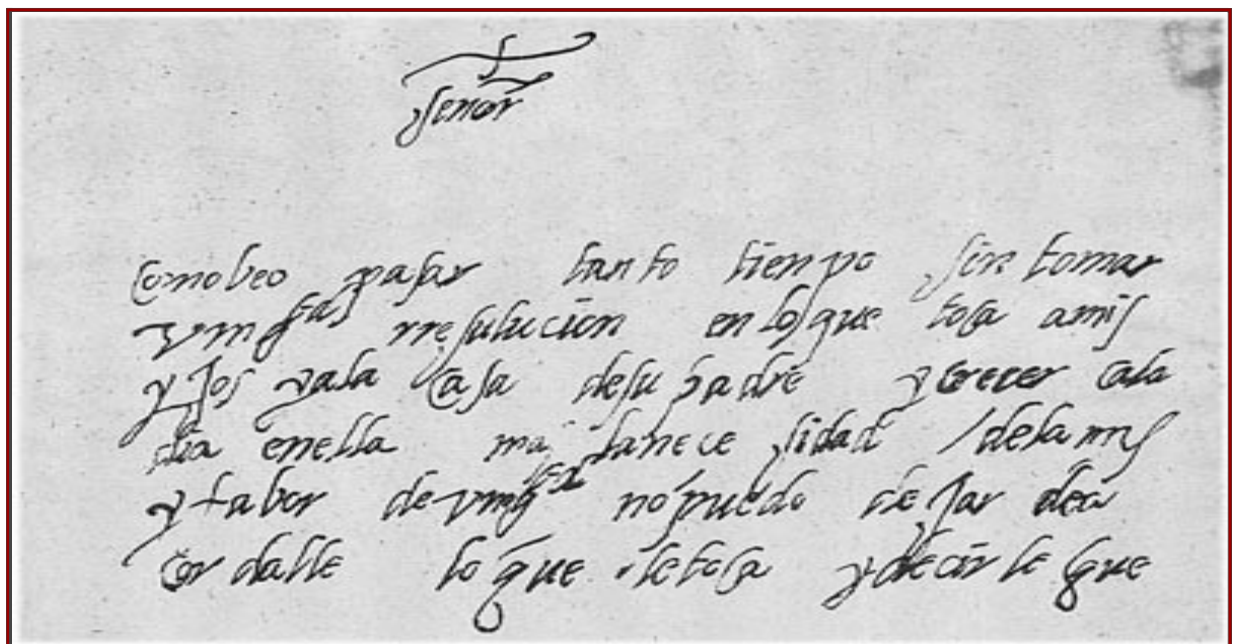 señor
comobeo pasar tanto tienpo sin tomar
vmgtad rresulucion enlosque toca amis
yJos yala casa desu padre ycrecer cada
dia enella mas lanece sidad / delamrs
yfabor devmgtad nopuedo deJar dea
cordalle loque letoca ydecirle que